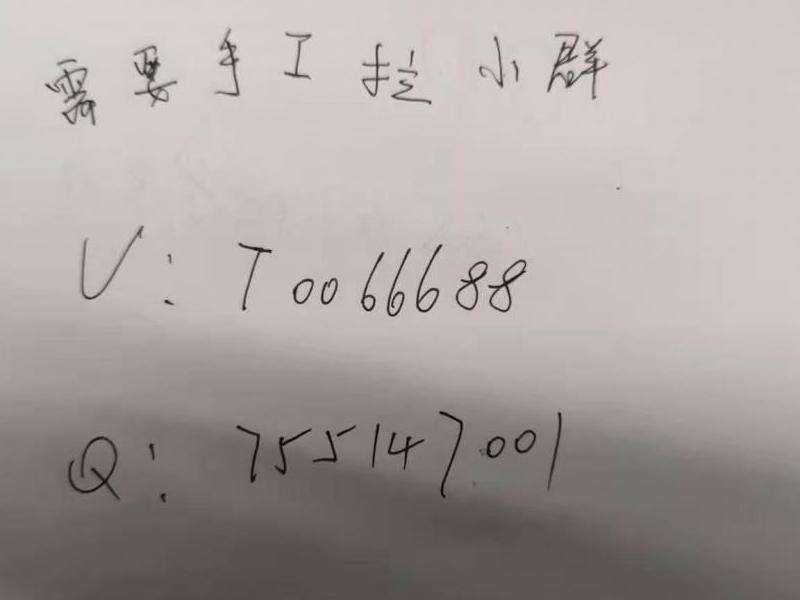 需要手工拉小群
V: T0066688
Q: 755147001